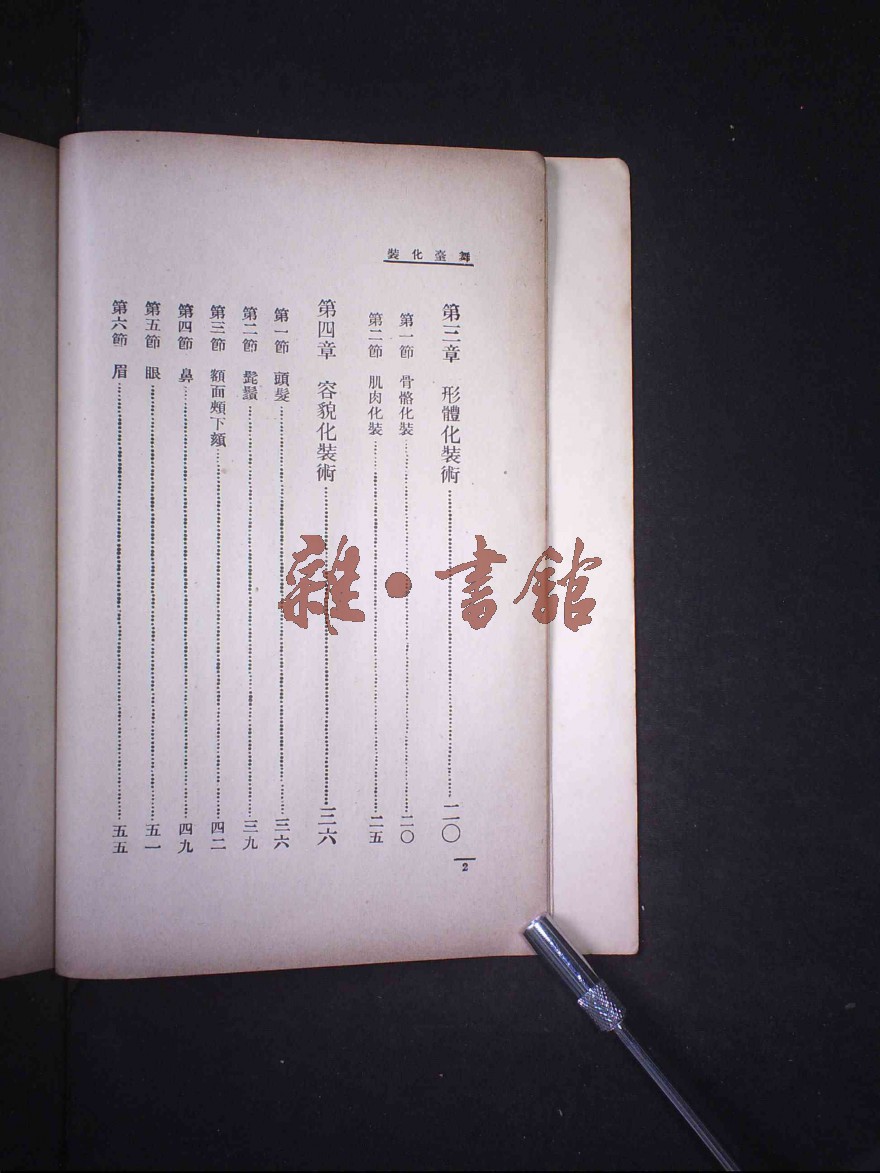 舞臺化裝
第三章 形體化裝術……二〇
第一節 骨骼化裝……二〇
第二節 肌肉化裝……二五
第四章 容貌化裝術……三六
第一節 頭髮……三六
第二節 髭鬚……三九
第三節 額面頰下頦……四二
第四節 鼻……四九
第五節 眼……五一
第六節 眉……五五
2
雜·書館